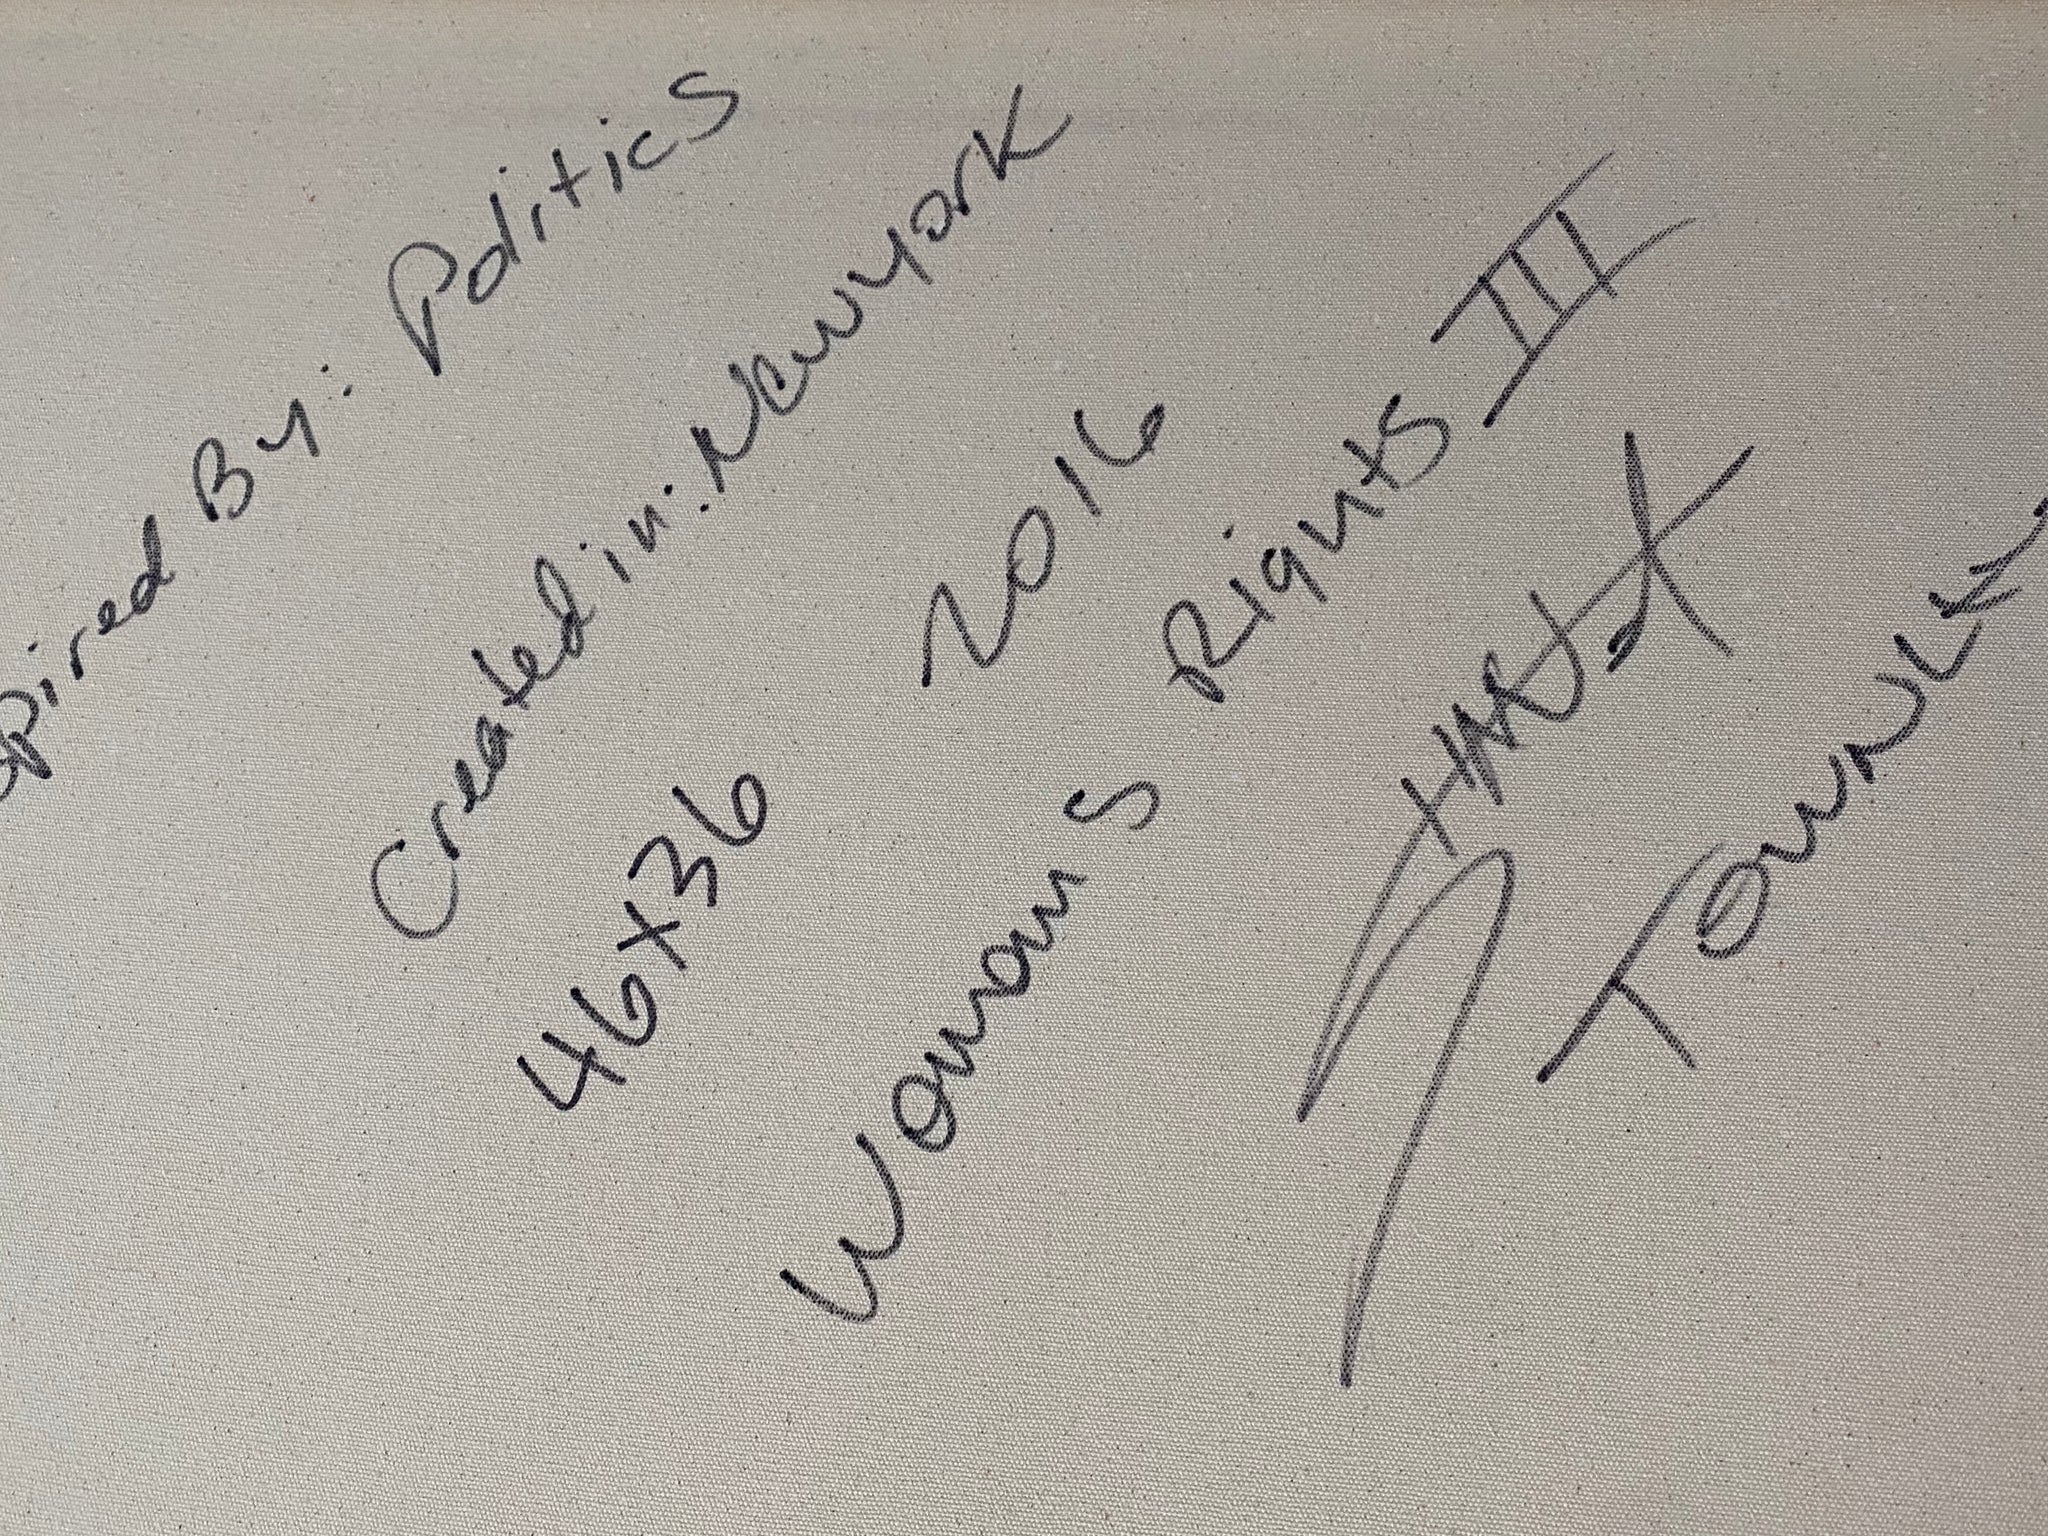 spired By: Politics
Created in: New York
46x36 2016
Womans Rights III
Townle